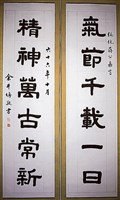 氣節千載一日
精神萬古常新
六十六年十月